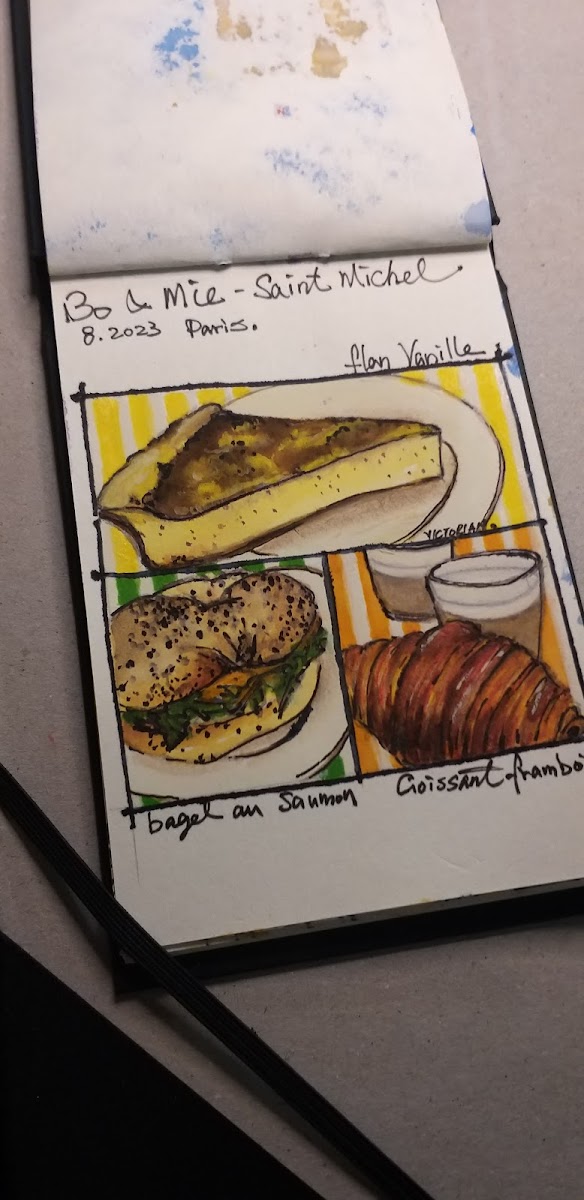 Bo & Mie - Saint Michel.
8.2023 Paris.
flan Vanille
VICTORIAN.
bagel au Saumon
Croissant-framboi